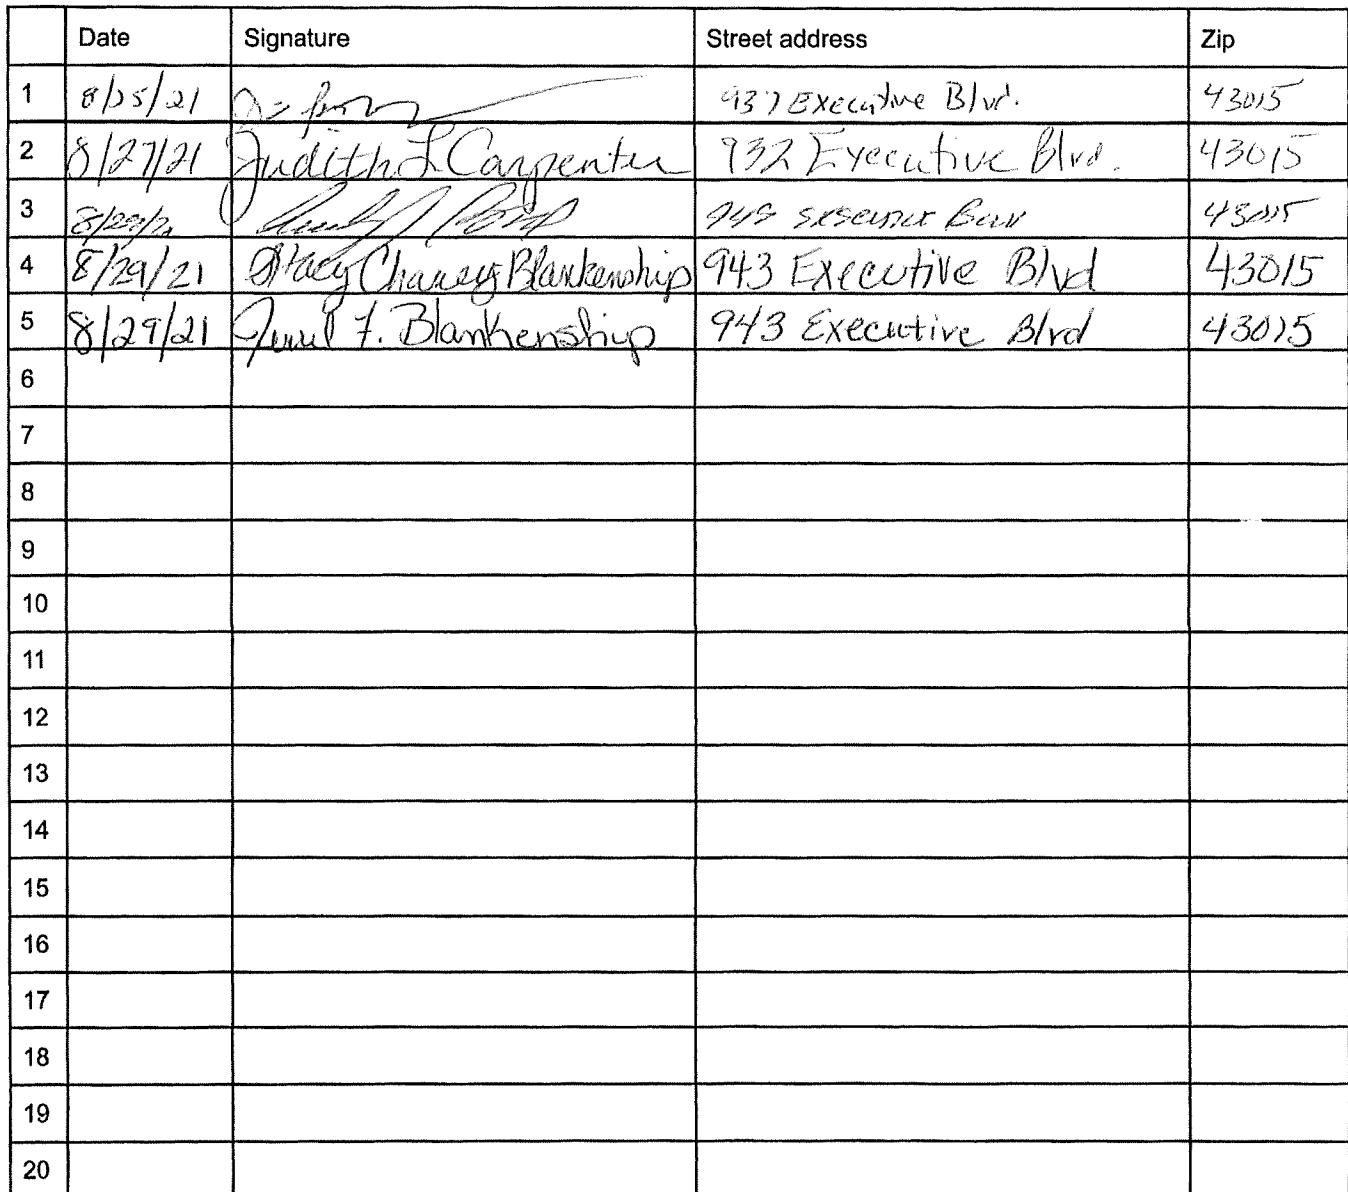 Date Signature Street address Zip
1 8/25/21 937 Executive Blvd. 43015
2 8/27/21 Judith L Carpenter 932 Executive Blvd. 43015
3 8/29/21 43015
4 8/29/21 Stacy Chaney Blankenship 943 Executive Blvd 43015
5 8/29/21 F. Blankenship 943 Executive Blvd 43015
6
7
8
9
10
11
12
13
14
15
16
17
18
19
20